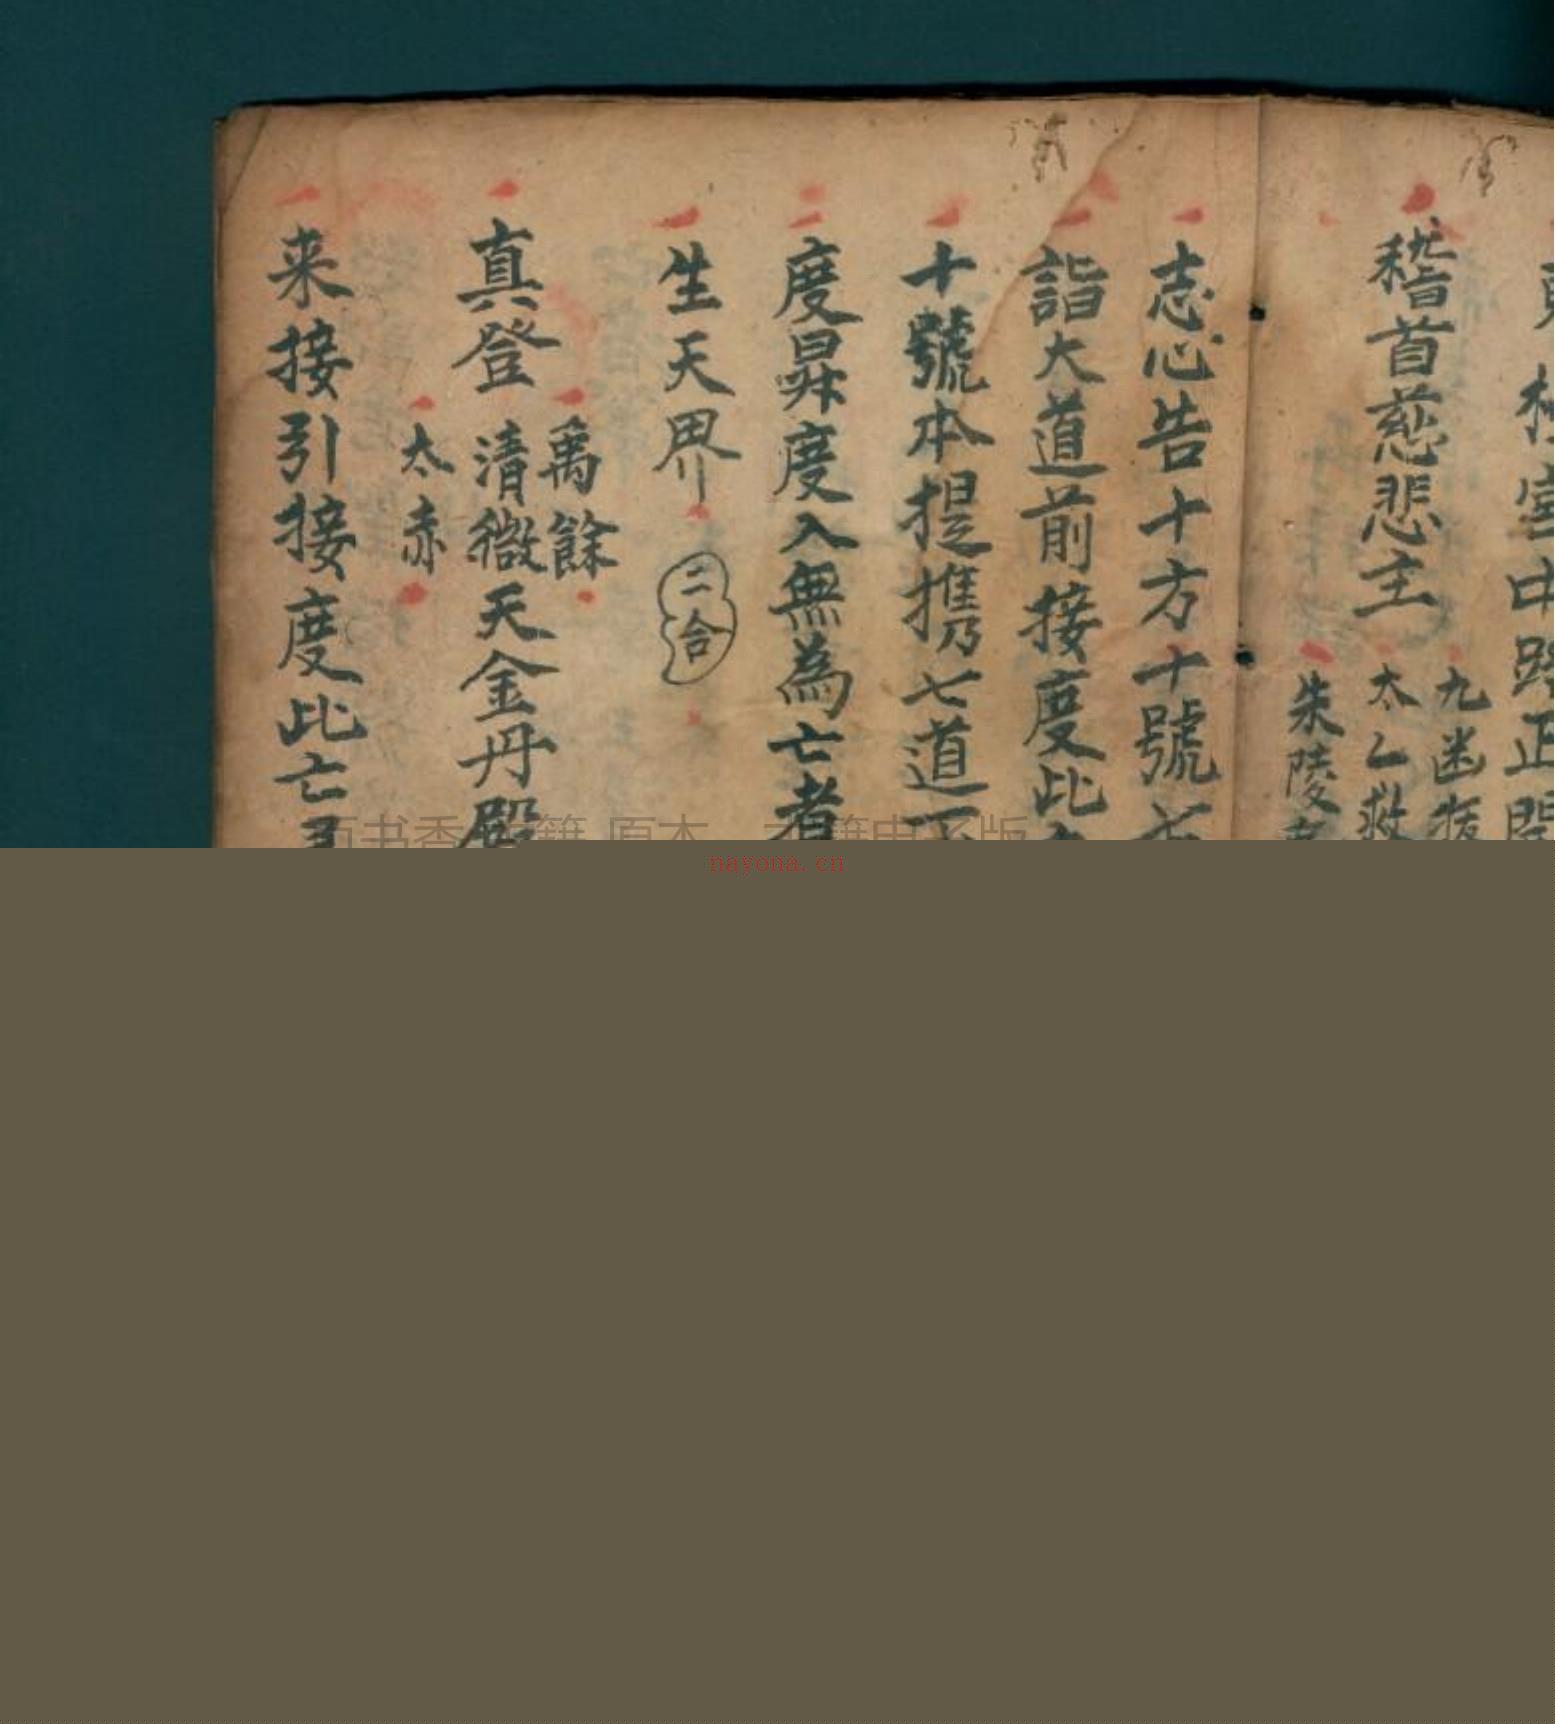 稽首慈悲主
九幽
太乙救
朱陵
志心告十方十號
詣大道前接度此
十號本提攜七道
度昇度入無為亡者
生天界
二合
真登
禹餘
清微天金丹殿
太赤
来接引接度此亡
nayona.cn